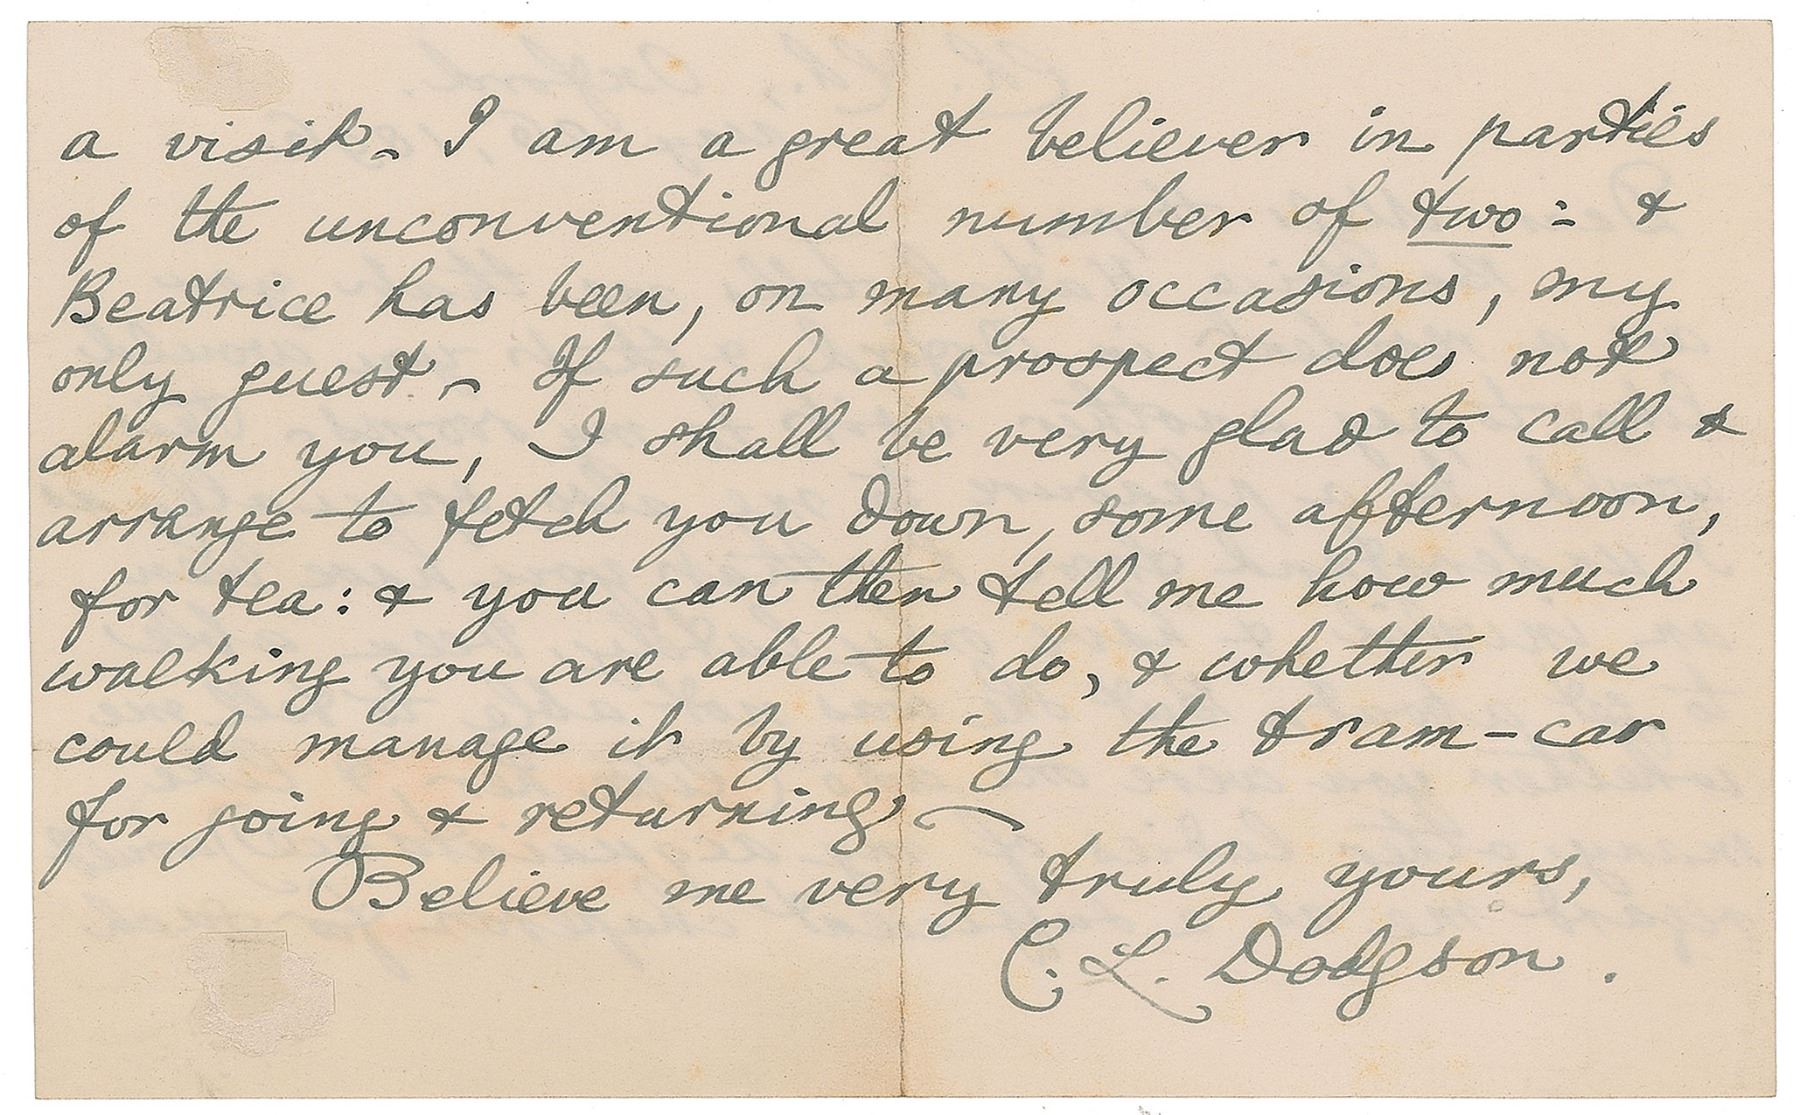 a visit - I am a great believer in parties
of the unconventional number of two: &
Beatrice has been, on many occasions, my
only guest - If such a prospect does not
alarm you, I shall be very glad to call &
arrange to fetch you down, some afternoon,
for tea: & you can then tell me how much
walking you are able to do, & whether we
could manage it by using the tram-car
for going & returning —
Believe me very truly yours,
C. L. Dodgson.